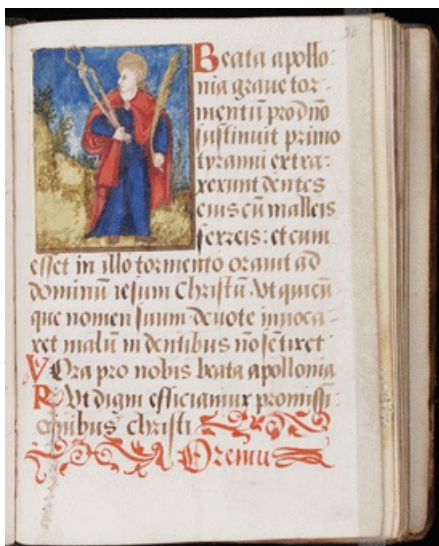 Beata apollo
nia graue tor-
mentū pro dn̄o
sustinuit primo
tyranni extra-
xerunt dentes
eius cū malleis
ferreis: et cum
esset in illo tormento orauit ad
dominū iesum Christū. Vt quicū
que nomen suum deuote inuoca-
ret malū in dentibus nō sētiret
V Ora pro nobis beata apollonia
R Vt digni efficiamur promissi-
onibus christi
Oremus